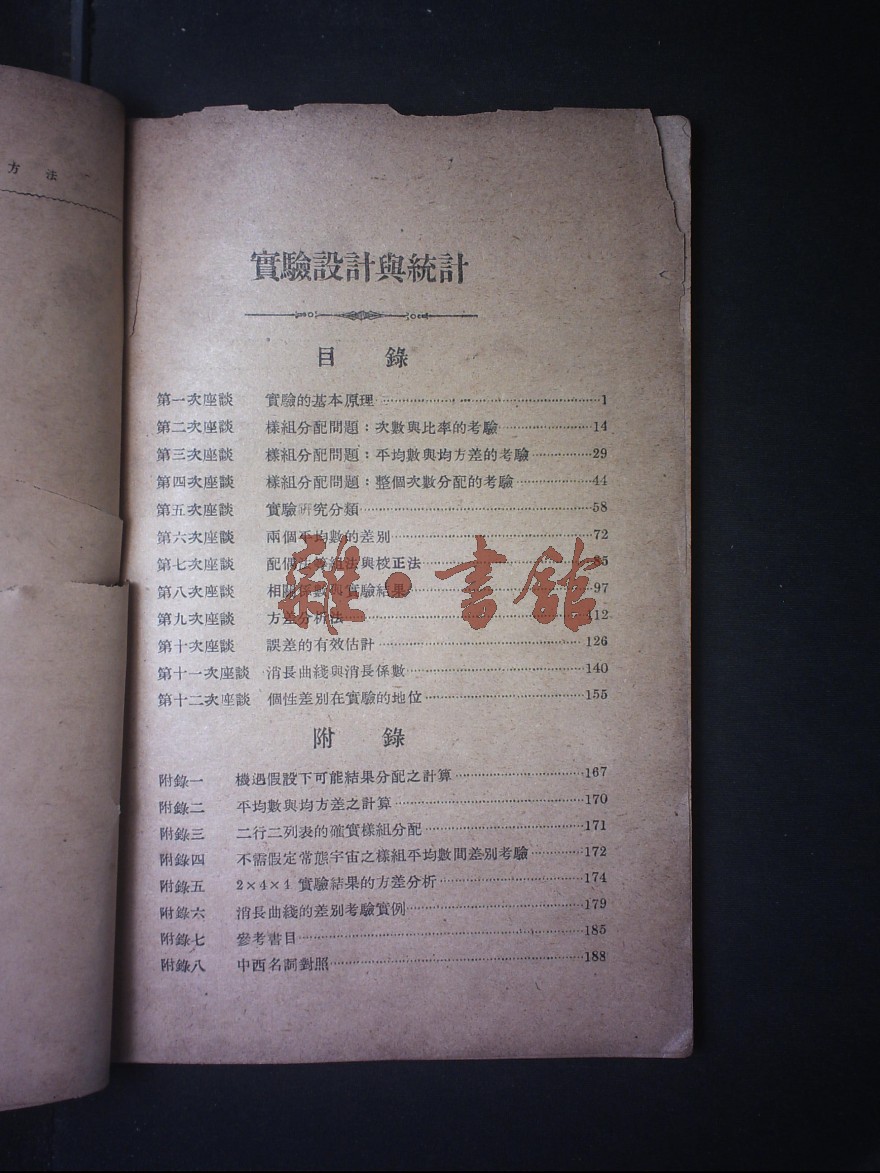 方 法
實驗設計與統計
目 錄
第一次座談 實驗的基本原理 1
第二次座談 樣組分配問題：次數與比率的考驗 14
第三次座談 樣組分配問題：平均數與均方差的考驗 29
第四次座談 樣組分配問題：整個次數分配的考驗 44
第五次座談 實驗研究分類 58
第六次座談 兩個平均數的差別 72
第七次座談 配偶法等組法與校正法 85
第八次座談 相關係數與實驗結果 97
第九次座談 方差分析法 112
第十次座談 誤差的有效估計 126
第十一次座談 消長曲綫與消長係數 140
第十二次座談 個性差別在實驗的地位 155
附 錄
附錄一 機遇假設下可能結果分配之計算 167
附錄二 平均數與均方差之計算 170
附錄三 二行二列表的確實樣組分配 171
附錄四 不需假定常態宇宙之樣組平均數間差別考驗 172
附錄五 2×4×4 實驗結果的方差分析 174
附錄六 消長曲綫的差別考驗實例 179
附錄七 參考書目 185
附錄八 中西名詞對照 188
雜·書館